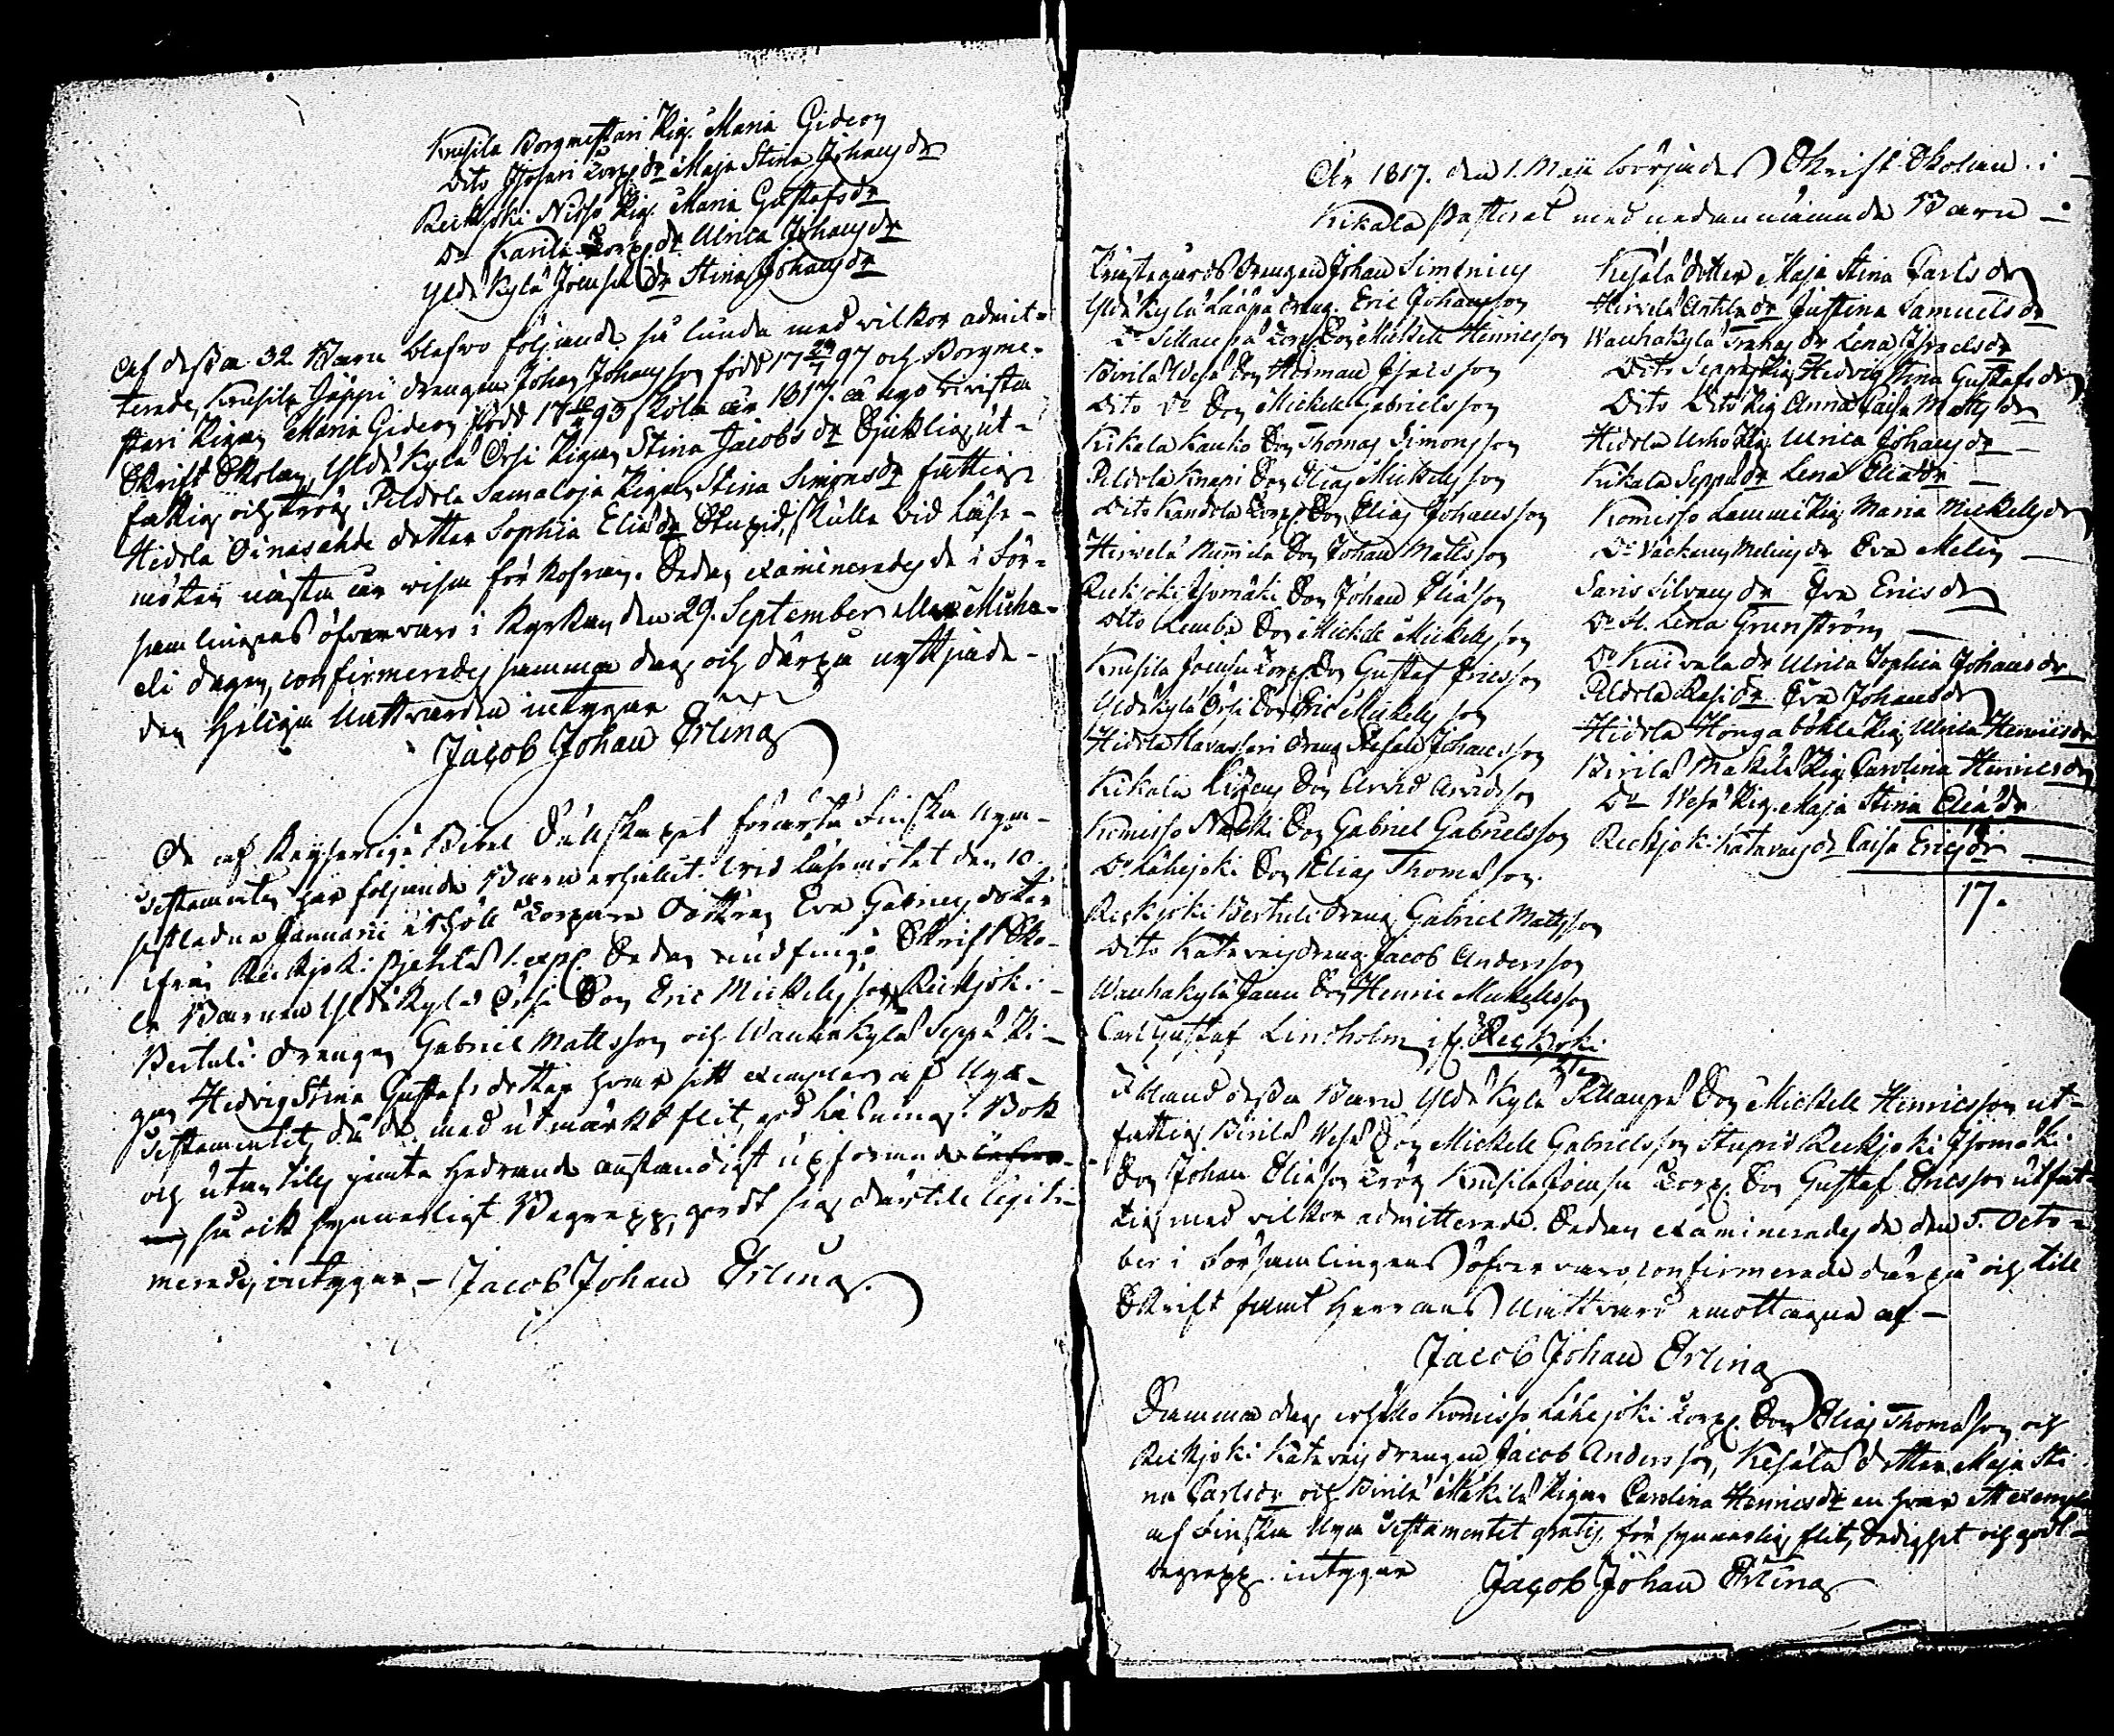 Knusila Borgmestari Pig. Maria Gideon
Dito Isosari Torp. dr Maja Stina Johansdr
Reckjoki Nisso Pig. Maria Gustafsdr
Do Karila Torp. dr Ulrica Johansdr
Yldäkylä Joensu dr Stina Johansdr
Af dessa 32 Barn blefvo följande så lunda med vilkor admit-
terade, Knusila Jäppi drängen Johan Johansson född 17 24/7 97 och Borgme-
stari Pigan Maria Gideon född 17 93 skola år 1817 å nyo bivista
Skrift Skolan, Yldäkylä Orsi Pigan Stina Jacobsdr Sjuklig, ut-
fattig och trög, Peldola Samaloja Pigan Stina Simonsdr fattig
Hidola Oinasahde dotter Sophia Eliädr Stupid, skulle vid Läse-
möten nästa år visa förkofran. Sedan examinerades de i För-
samlingens öfvervaro i Kyrkan den 29. September Micha-
eli dagen, confirmerades samma dag och därpå nyttjade
den Heliga Nattvarden intygar
Jacob Johan Erling
De af Keyserliga Bibel Sällskapet förärta Finska Nya
Testamenten har följande Barn erhållit. Vid Läsemötet den 10.
sistledne Januarii erhöll Torpare Dottren Eva Gabriels dotter
ifrån Reckjoki Pjehtä 1. expl. Sedan undfingo Skrift Sko-
le Barnen Yldäkylä Orsi Son Eric Mickelsson, Reckjoki
Bertuli drängen Gabriel Mattsson och Wauhakylä Seppä Pi-
gan Hedvig Stina Gustafs dotter hvar sitt exemplar af Nya
Testamentet, då de med utmärkt flit, god läsning i Bok
och utantill, jemte hedrande anständigt upförande
så ock synnerligt Begrepp, gjordt sig därtill legiti-
merade, intygar. — Jacob Johan Erling.
År 1817. den 1. Maji börjades Skrift-Skolan i
Kikala Pastorat med nedannämnde Barn
Prästegårds drängen Johan Simenius
Yldäkylä Laapa dräng Eric Johansson
Do Sillanpä Torp. Son Mickell Henricsson
Birila Vesa Son Herman Isacsson
Dito Do Son Mickell Gabrielsson
Kikala Kauko Son Thomas Simonsson
Peldola Knapi Son Elias Mickelsson
Dito Kandola Torp. Son Elias Johansson
Hirvelä Nummela Son Johan Mattsson
Reckjoki Isomäki Son Johan Eliäson
Dito Lemba Son Mickel Mickelsson
Knusila Joensu Torp. Son Gustaf Ericsson
Yldäkylä Orsi Son Eric Mickelsson
Hidola Havassari dräng Stefan Johansson
Kikala Lizeus Son Arvid Arvidsson
Komisso Nacki Son Gabriel Gabrielsson
Do Lähejoki Son Elias Thomasson.
Reckjoki Bertuli dräng Gabriel Mattsson
Dito Katavais dräng Jacob Andersson
Wauhakylä Janu Son Henric Mickelsson
Carl Gustaf Lindholm if. Reckjoki
Kesälä dotter Maja Stina Carlsdr
Hirvelä Anttila dr Justina Samuelsdr
Wauhakylä dr Lena Israelsdr
Dito Seppä Pig. Hedvig Stina Gustafsdr
Dito Dito Pig. Anna Caisa Mattsdr
Hidola Urho Pig. Ulrica Johansdr
Kikala Seppä dr Lena Eliädr
Komisso Lammi Pig. Maria Mickelsdr
Do Melins dr Eva Melin
Saris Silvans dr Eva Ericsdr
Do St. Lena Grunström
Do Kuivala dr Ulrica Sophia Johansdr
Peldola Rasi dr Eva Johansdr
Hidola Hongaböhle Pig. Ulrica Henricsdr
Birila Mäkilä Pig. Carolina Henricsdr
Do Vesa Pig. Maja Stina Eliädr
Reckjoki Katavais dr Caisa Ericsdr
17.
Ibland dessa Barn Yldäkylä Sillanpä Son Mickell Henricsson ut-
fattig, Birila Vesa Son Mickell Gabrielsson Stupid, Reckjoki Isomäki
Son Johan Eliäson trög, Knusila Joensu Torp. Son Gustaf Ericsson utfat-
tig med vilkor admitterade. Sedan examinerades de den 5. Octo-
ber i Församlingens öfvervaro, confirmerade därpå och till
Skrift samt Herrans Nattvard emottagne af —
Jacob Johan Erling
Samma dag erhöllo Komisso Lähejoki Torp. Son Elias Thomasson och
Reckjoki Katavais drängen Jacob Andersson, Kesälä dotter Maja Sti
na Carlsdr och Birila Mäkilä Pigan Carolina Henricsdr en hvar ett exempl
af Finska Nya Testamentet gratis, för synnerlig flit, Sedighet och godt
begrepp intygar Jacob Johan Erling